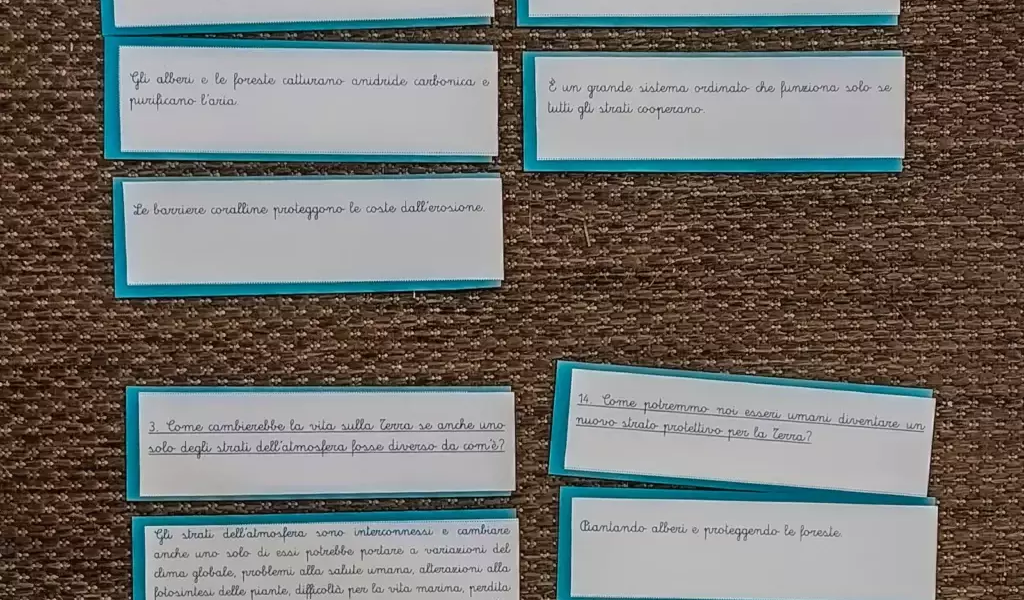 Gli alberi e le foreste catturano anidride carbonica e
purificano l'aria.
È un grande sistema ordinato che funziona solo se
tutti gli strati cooperano.
Le barriere coralline proteggono le coste dall'erosione.
3. Come cambierebbe la vita sulla Terra se anche uno
solo degli strati dell'atmosfera fosse diverso da com'è?
Gli strati dell'atmosfera sono interconnessi e cambiare
anche uno solo di essi potrebbe portare a variazioni del
clima globale, problemi alla salute umana, alterazioni alla
fotosintesi delle piante, difficoltà per la vita marina, perdita
14. Come potremmo noi esseri umani diventare un
nuovo strato protettivo per la Terra?
Piantando alberi e proteggendo le foreste.